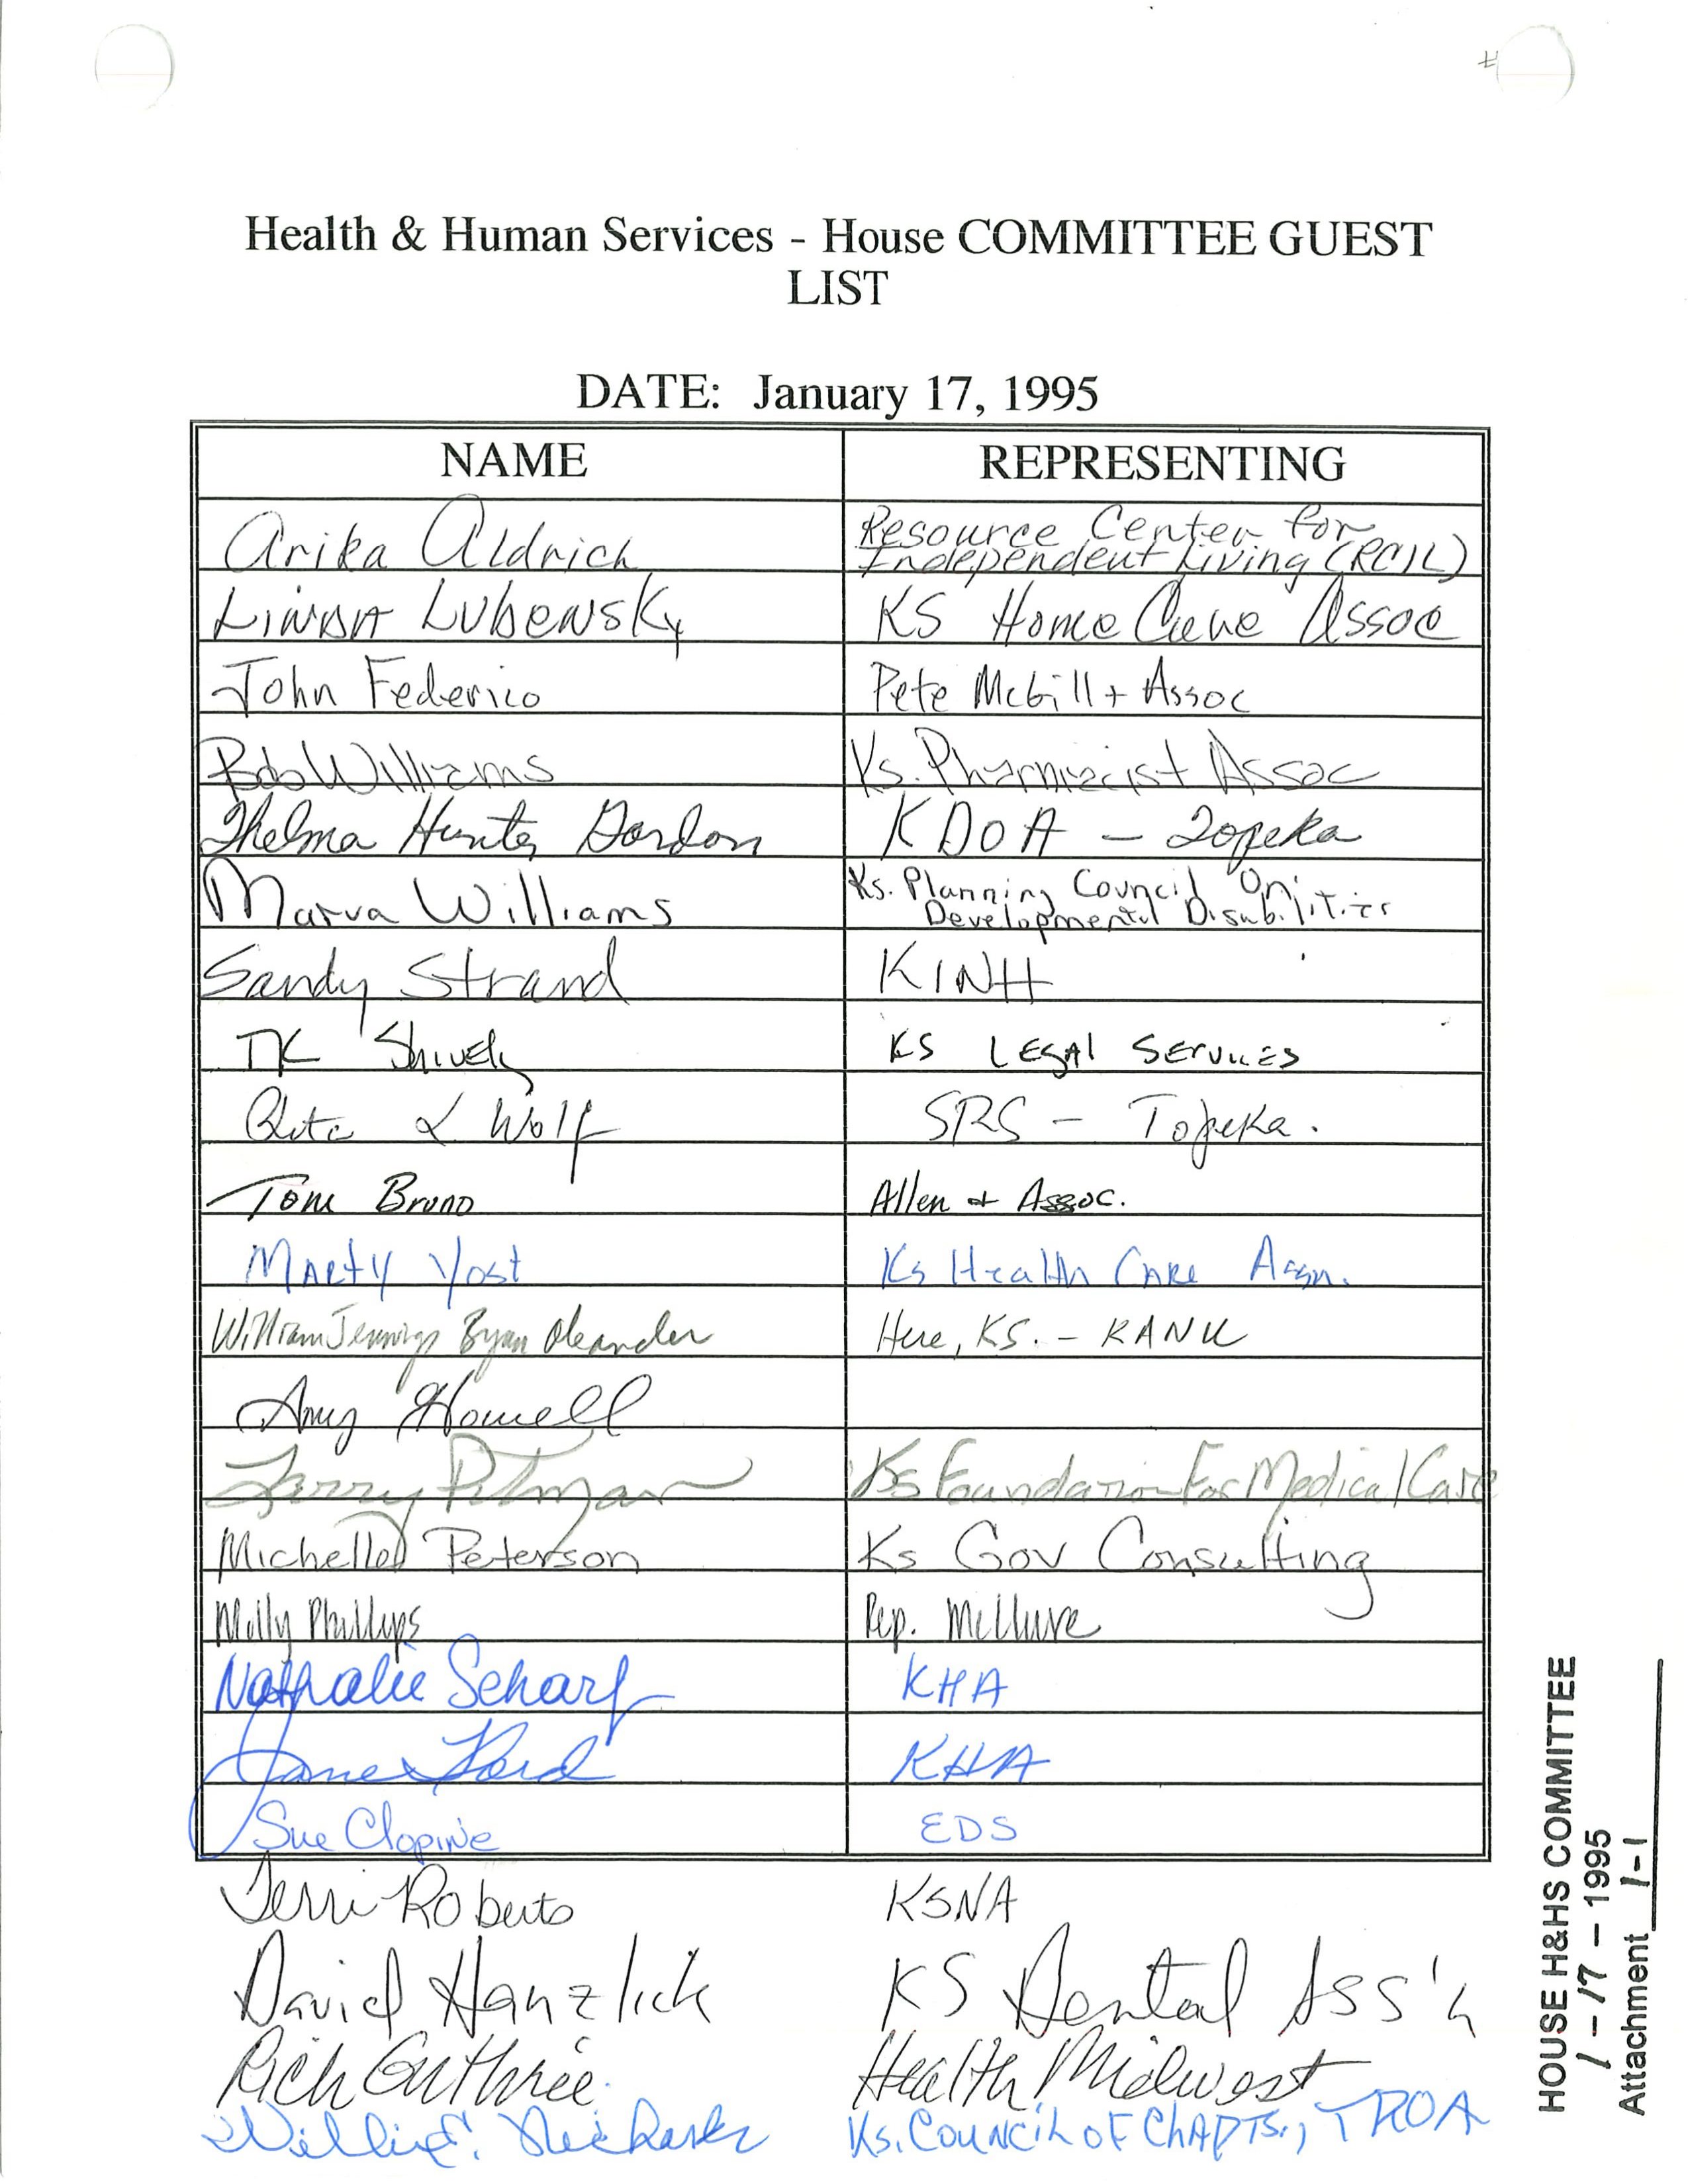 Health & Human Services - House COMMITTEE GUEST
LIST
DATE: January 17, 1995
NAME REPRESENTING
Arika Aldrich Resource Center for
Independent Living (RCIL)
LINDA LUBENSKY KS Home Care Assoc
John Federico Pete McGill + Assoc
Bob Williams Ks. Pharmacist Assoc
Thelma Hunter Gordon KDOA - Topeka
Marva Williams Ks. Planning Council On
Developmental Disabilities
Sandy Strand KINH
TK Shively KS LEGAL SERVICES
Rita L Wolf SRS - Topeka.
Tom Bruno Allen & Assoc.
MARTY Yost Ks Health CARE Assn.
William Jennings Bryan Oleander Here, KS. - KANU
Amy Howell
Terry Pitman Ks Foundation For Medical Care
Michelle Peterson Ks Gov Consulting
Milly Phillips Rep. McClure
Nathalie Scharf KHA
Ford KHA
Sue Clopine EDS
Terri Roberts KSNA
David Hanzlick KS Dental Ass'n
Rich Guthrie Health Midwest
Ks. COUNCIL OF ChAPTS., TROA
HOUSE H&HS COMMITTEE
1-17-1995
Attachment 1-1